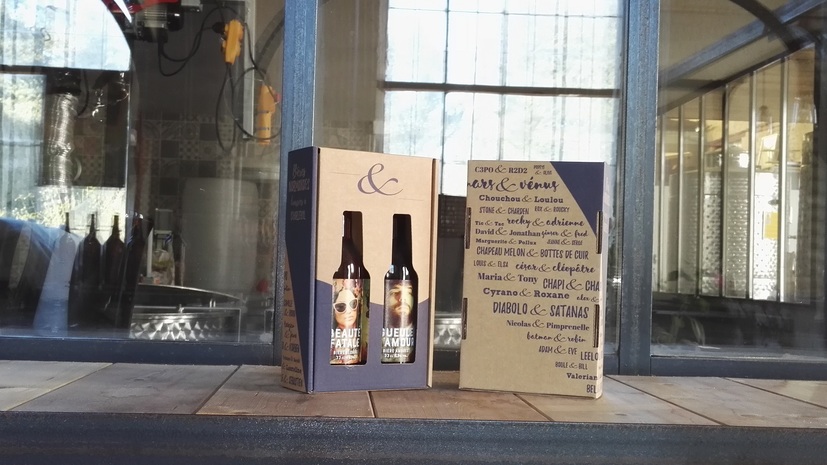 &
BEAUTÉ
FATALE
GUEULE
D'AMOUR
C3PO & R2D2
mars & vénus
Chouchou & Loulou
STONE & CHARDEN
Tic & Tac rocky & adrienne
David & Jonathan ginger & fred
Marguerite &
CHAPEAU MELON & BOTTES DE CUIR
LOUIS & ELSA césar & cléopâtre
Maria & Tony CHAPI & CHA
Cyrano & Roxane
DIABOLO & SATANAS
Nicolas & Pimprenelle
batman & robin
ADAM & EVE LEELO
BOULE & BILL
Valerian
BEL